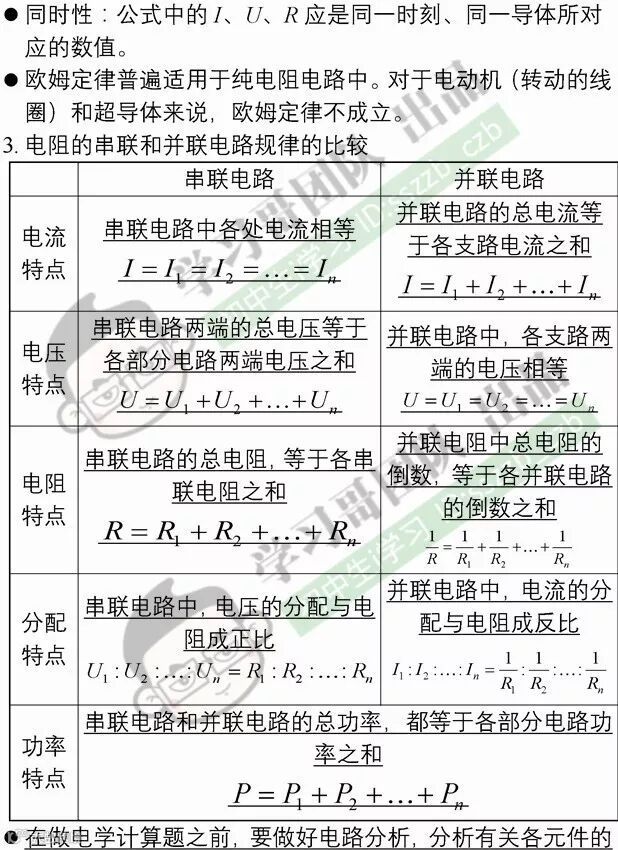 ● 同时性：公式中的 I、U、R 应是同一时刻、同一导体所对
应的数值。
● 欧姆定律普遍适用于纯电阻电路中。对于电动机（转动的线
圈）和超导体来说，欧姆定律不成立。
3. 电阻的串联和并联电路规律的比较
串联电路
并联电路
电流
特点
串联电路中各处电流相等
I = I₁ = I₂ = … = Iₙ
并联电路的总电流等
于各支路电流之和
I = I₁ + I₂ + … + Iₙ
电压
特点
串联电路两端的总电压等于
各部分电路两端电压之和
U = U₁ + U₂ + … + Uₙ
并联电路中，各支路两
端的电压相等
U = U₁ = U₂ = … = Uₙ
电阻
特点
串联电路的总电阻，等于各串
联电阻之和
R = R₁ + R₂ + … + Rₙ
并联电阻中总电阻的
倒数，等于各并联电路
的倒数之和
1/R = 1/R₁ + 1/R₂ + … + 1/Rₙ
分配
特点
串联电路中，电压的分配与电
阻成正比
U₁ : U₂ : … : Uₙ = R₁ : R₂ : … : Rₙ
并联电路中，电流的分
配与电阻成反比
I₁ : I₂ : … : Iₙ = 1/R₁ : 1/R₂ : … : 1/Rₙ
功率
特点
串联电路和并联电路的总功率，都等于各部分电路功
率之和
P = P₁ + P₂ + … + Pₙ
● 在做电学计算题之前，要做好电路分析，分析有关各元件的
学习哥团队 出品
学习哥团队 出品